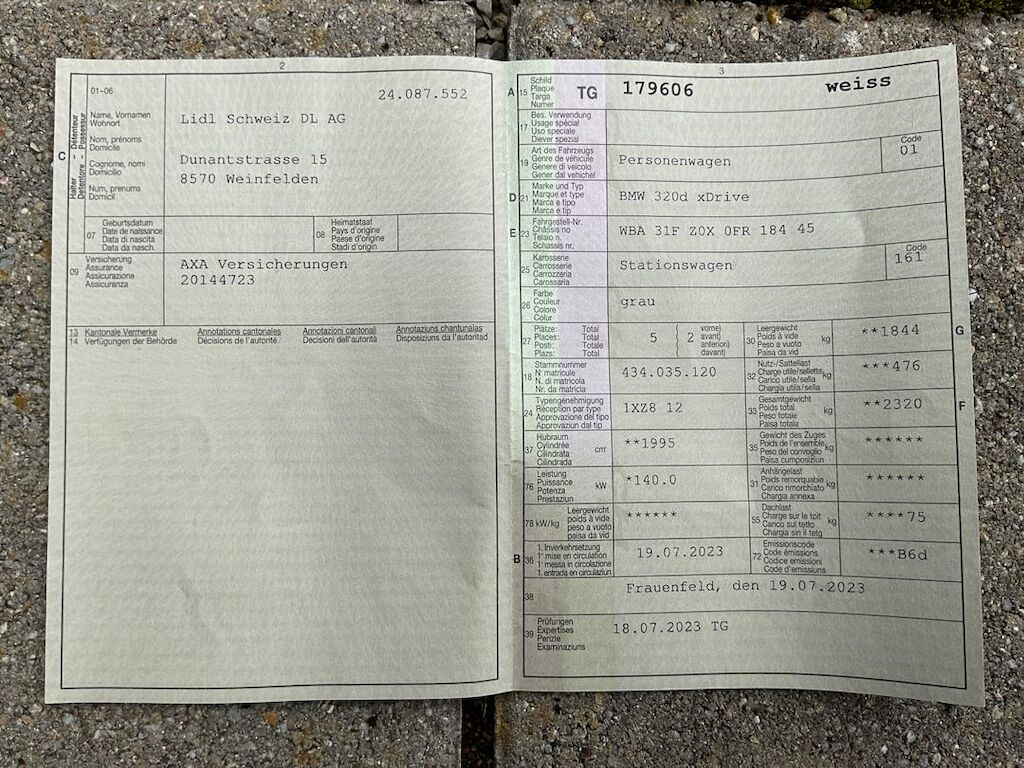 2
01-06
24.087.552
Name, Vornamen
Wohnort
Nom, prénoms
Domicile
Cognome, nomi
Domicilio
Num, prenums
Domicil
C
Halter Détenteur
Detentore Possessur
Lidl Schweiz DL AG
Dunantstrasse 15
8570 Weinfelden
07
Geburtsdatum
Date de naissance
Data di nascita
Data da nasch.
08
Heimatstaat
Pays d'origine
Paese d'origine
Stadi d'origin
09
Versicherung
Assurance
Assicurazione
Assicuranza
AXA Versicherungen
20144723
13 Kantonale Vermerke Annotations cantonales Annotazioni cantonali Annotaziuns chantunalas
14 Verfügungen der Behörde Décisions de l'autorité Decisioni dell'autorità Disposiziuns da l'autoritad
3
A 15
Schild
Plaque
Targa
Numer
TG 179606 weiss
17
Bes. Verwendung
Usage spécial
Uso speciale
Diever spezial
19
Art des Fahrzeugs
Genre de véhicule
Genere di veicolo
Gener dal vehichel
Personenwagen
Code
01
D 21
Marke und Typ
Marque et type
Marca e tipo
Marca e tip
BMW 320d xDrive
E 23
Fahrgestell-Nr.
Châssis no
Telaio n.
Schassis nr.
WBA 31F Z0X 0FR 184 45
25
Karosserie
Carrosserie
Carrozzeria
Carossaria
Stationswagen
Code
161
26
Farbe
Couleur
Colore
Colur
grau
27
Plätze: Total
Places: Total
Posti: Totale
Plazs: Total
5
2
vorne)
avant)
anteriori)
davant)
30
Leergewicht
Poids à vide
Peso a vuoto
Paisa da vid
kg
**1844
G
18
Stammnummer
N° matricule
N. di matricola
Nr. da matricla
434.035.120
32
Nutz-/Sattellast
Charge utile/sellette
Carico utile/sella
Chargia utila/sella
kg
***476
24
Typengenehmigung
Réception par type
Approvazione del tipo
Approvaziun dal tip
1XZ8 12
33
Gesamtgewicht
Poids total
Peso totale
Paisa totala
kg
**2320
F
37
Hubraum
Cylindrée
Cilindrata
Cilindrada
cm³
**1995
35
Gewicht des Zuges
Poids de l'ensemble
Peso del convoglio
Paisa cumposiziun
kg
******
76
Leistung
Puissance
Potenza
Prestaziun
kW
*140.0
31
Anhängelast
Poids remorquable
Carico rimorchiato
Chargia annexa
kg
******
78 kW/kg
Leergewicht
poids à vide
peso a vuoto
paisa da vid
******
55
Dachlast
Charge sur le toit
Carico sul tetto
Chargia sin il tetg
kg
****75
B 36
1. Inverkehrsetzung
1re mise en circulation
1a messa in circolazione
1. entrada en circulaziun
19.07.2023
72
Emissionscode
Code émissions
Codice emissioni
Code d'emissiuns
***B6d
38
Frauenfeld, den 19.07.2023
39
Prüfungen
Expertises
Perizie
Examinaziuns
18.07.2023 TG